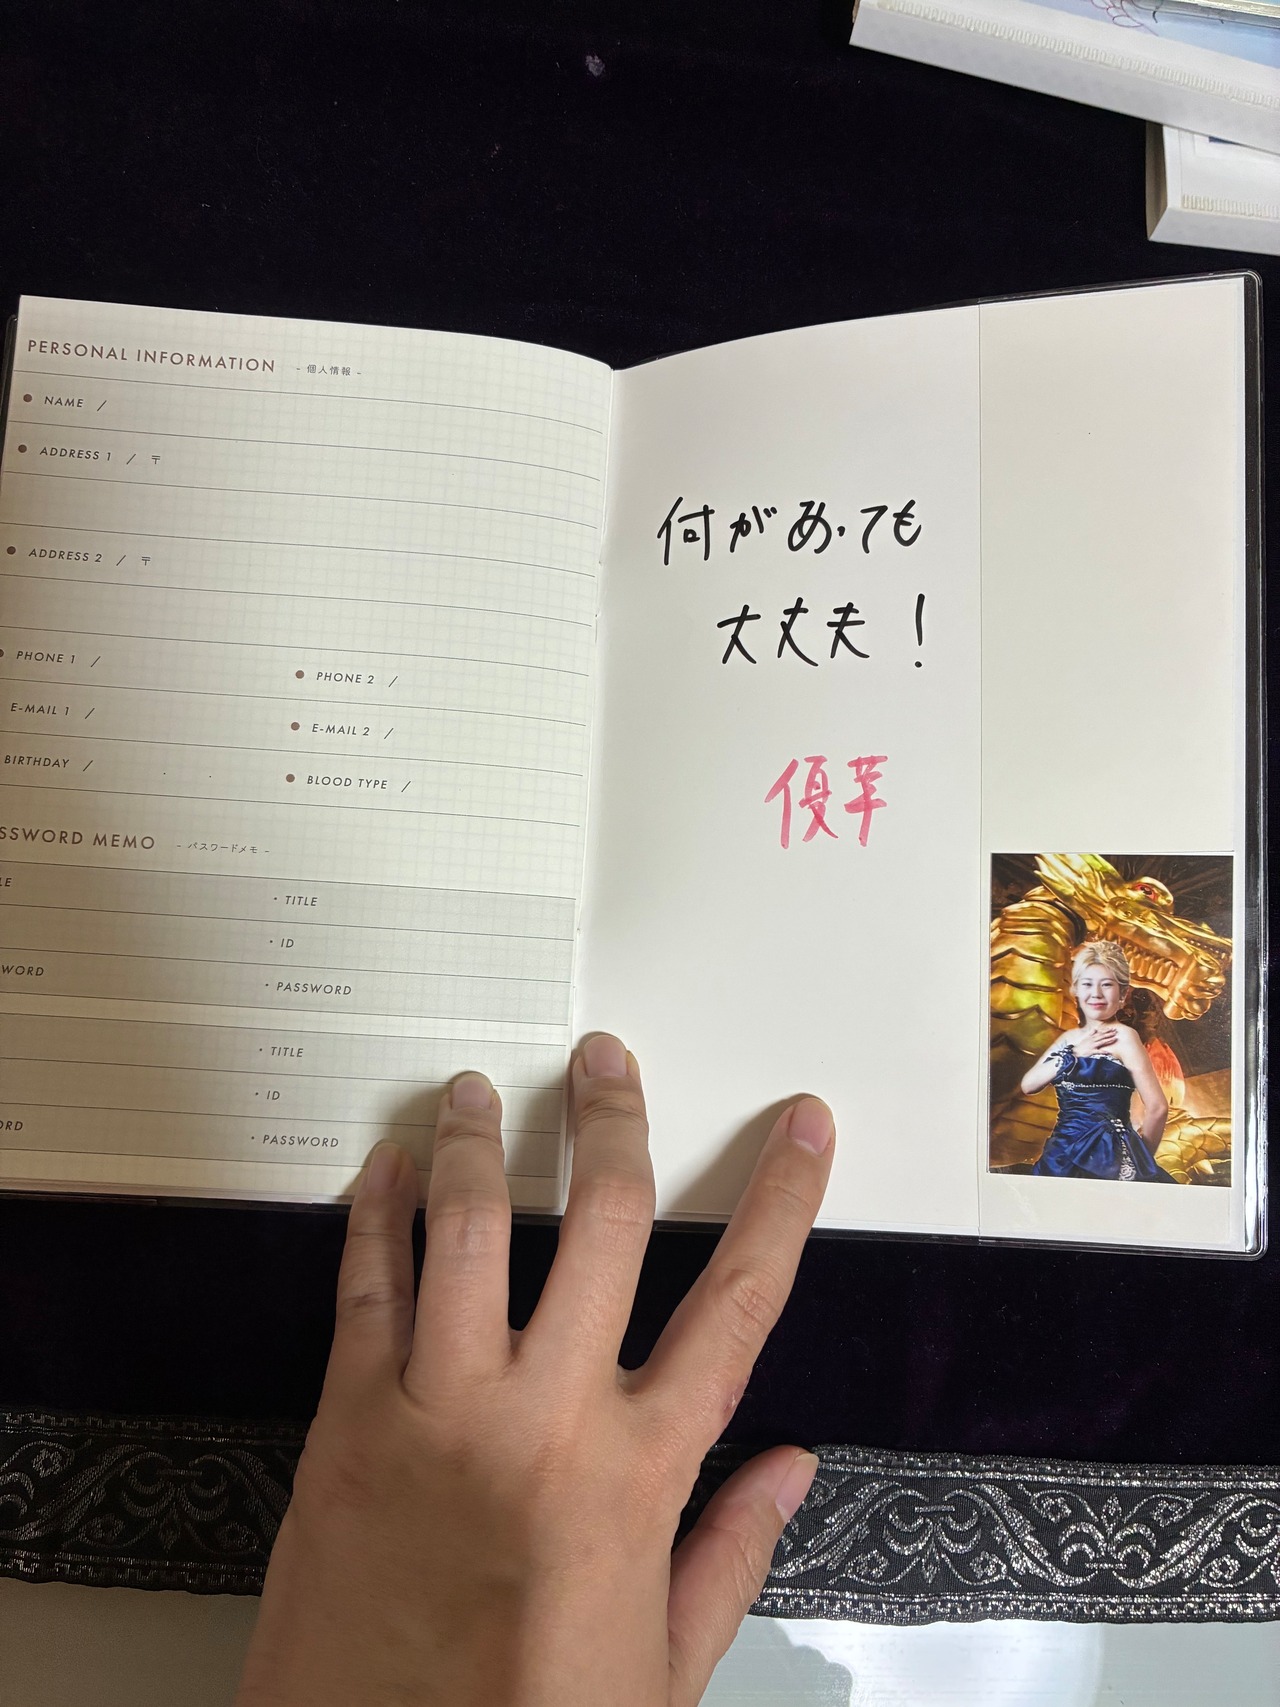 PERSONAL INFORMATION - 個人情報 -
NAME /
ADDRESS 1 / 〒
ADDRESS 2 / 〒
PHONE 1 / PHONE 2 /
E-MAIL 1 / E-MAIL 2 /
BIRTHDAY / . . BLOOD TYPE /
SSWORD MEMO - パスワードメモ -
LE ・TITLE
・ID
WORD ・PASSWORD
・TITLE
・ID
ORD ・PASSWORD
何があっても
大丈夫！